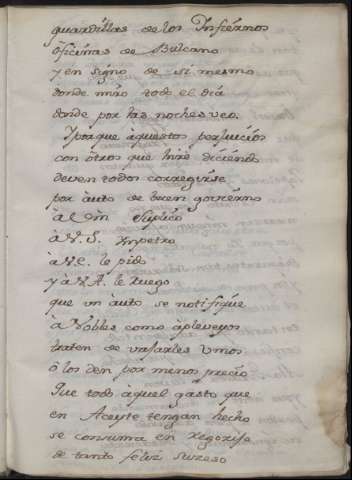 guardillas de los Infiernos
oficinas de Bulcano
y en signo de si mesmo
donde miro todo el dia
donde por las noches veo.
Y porque àquestos perjuicios
con òtros que hire diciendo
deven todos corregirse
por àuto de buen govierno
à el Suplico
à V. S. Impetro
à V. E. le pido
y à V. A. le ruego
que un àuto se notifique
à Nobles como àpleveyos
traten de vajarles Unos
ò los den por menos precio
Que todo àquel gasto que
en Aceyte tengan hecho
se consuma en regosijo
de tanto feliz suzeso